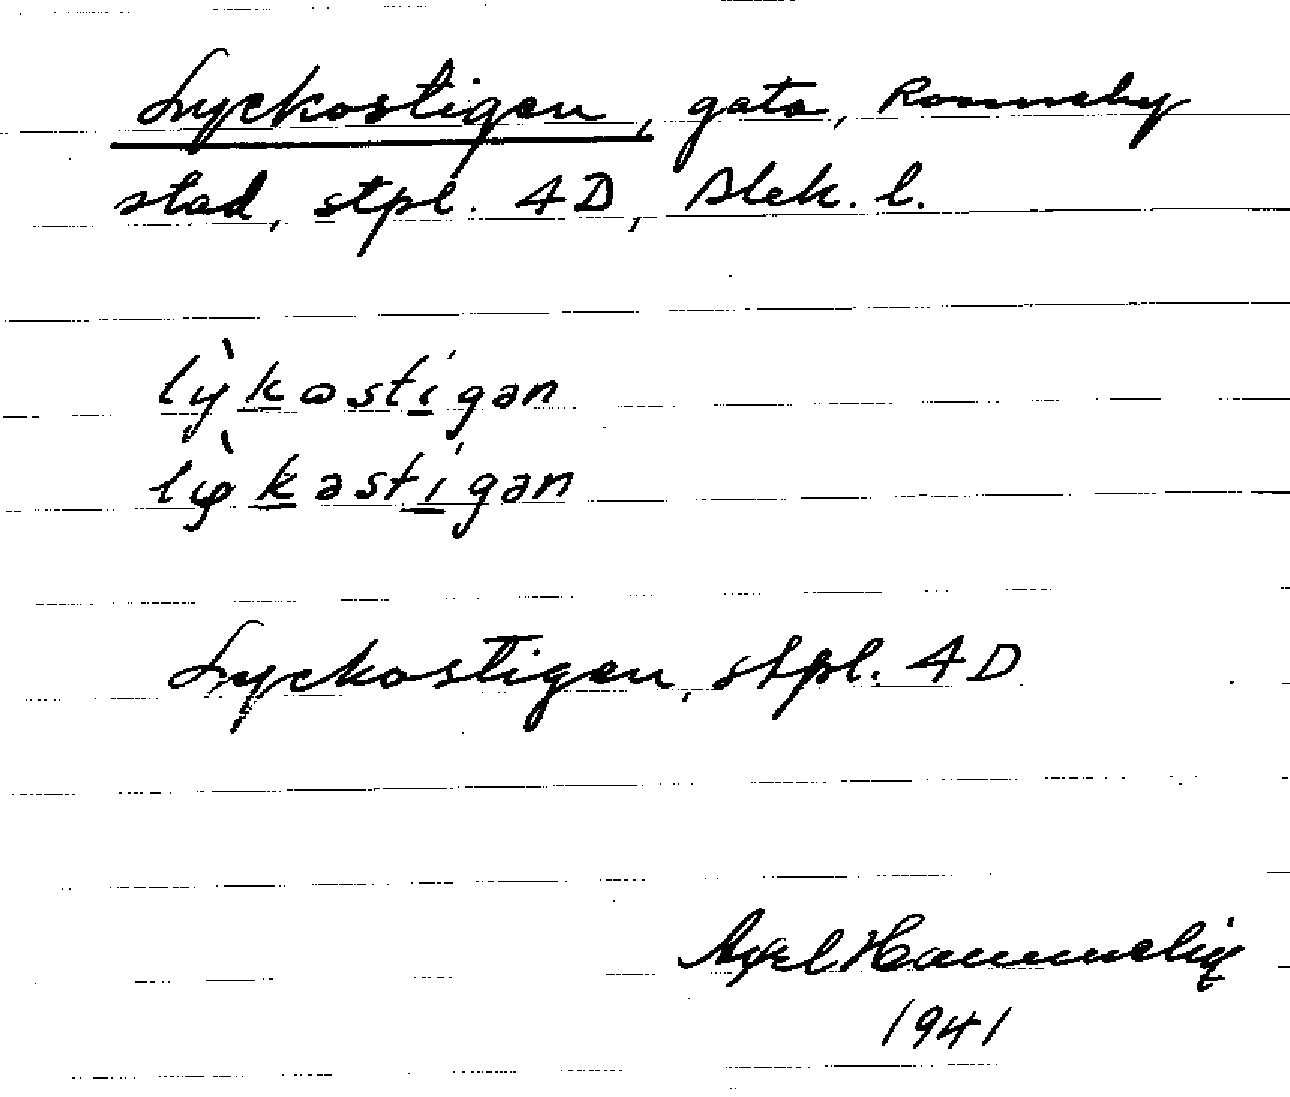 Lyckostigen, gata, Ronneby
stad, stpl. 4D, Blek. l.
lỳkostígən
lỳkəstígən
Lyckostigen, stpl. 4D
Axel
1941